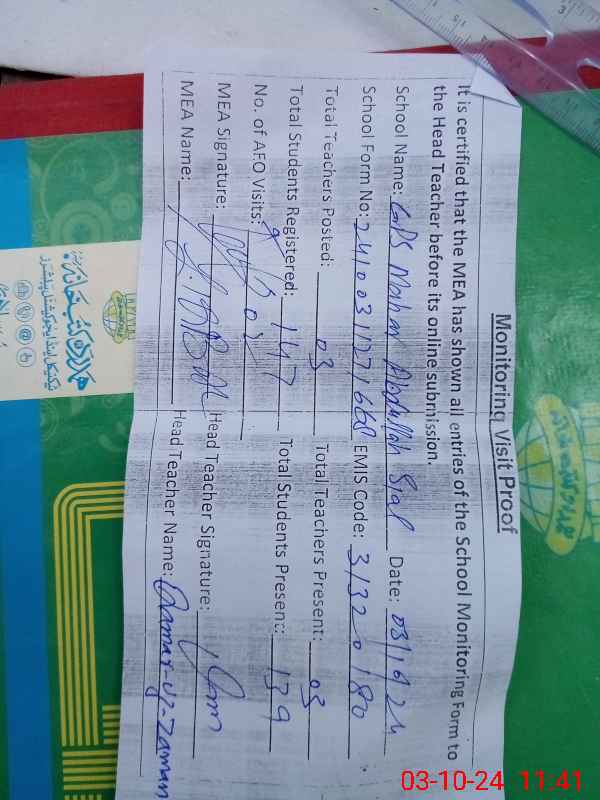 Monitoring Visit Proof
It is certified that the MEA has shown all entries of the School Monitoring Form to
the Head Teacher before its online submission.
School Name: GPS Mahar Abdullah Sial Date: 03/10/24
School Form No: EMIS Code: 31320180
Total Teachers Posted: 03 Total Teachers Present: 03
Total Students Registered: 147 Total Students Present: 139
No. of AEO Visits: 02
MEA Signature: Head Teacher Signature:
MEA Name: Head Teacher Name: Qamar-uz-Zaman
03-10-24 11:41